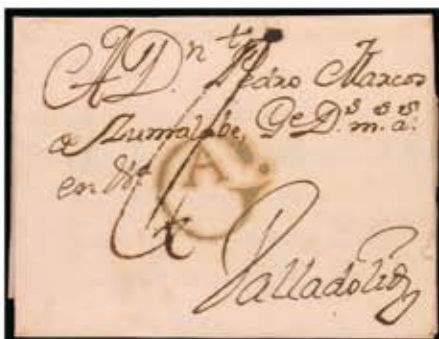 A D.n Pedro Marcos
a Zumalabe, G.e D.s m.s a.s
en
A.
Valladolid